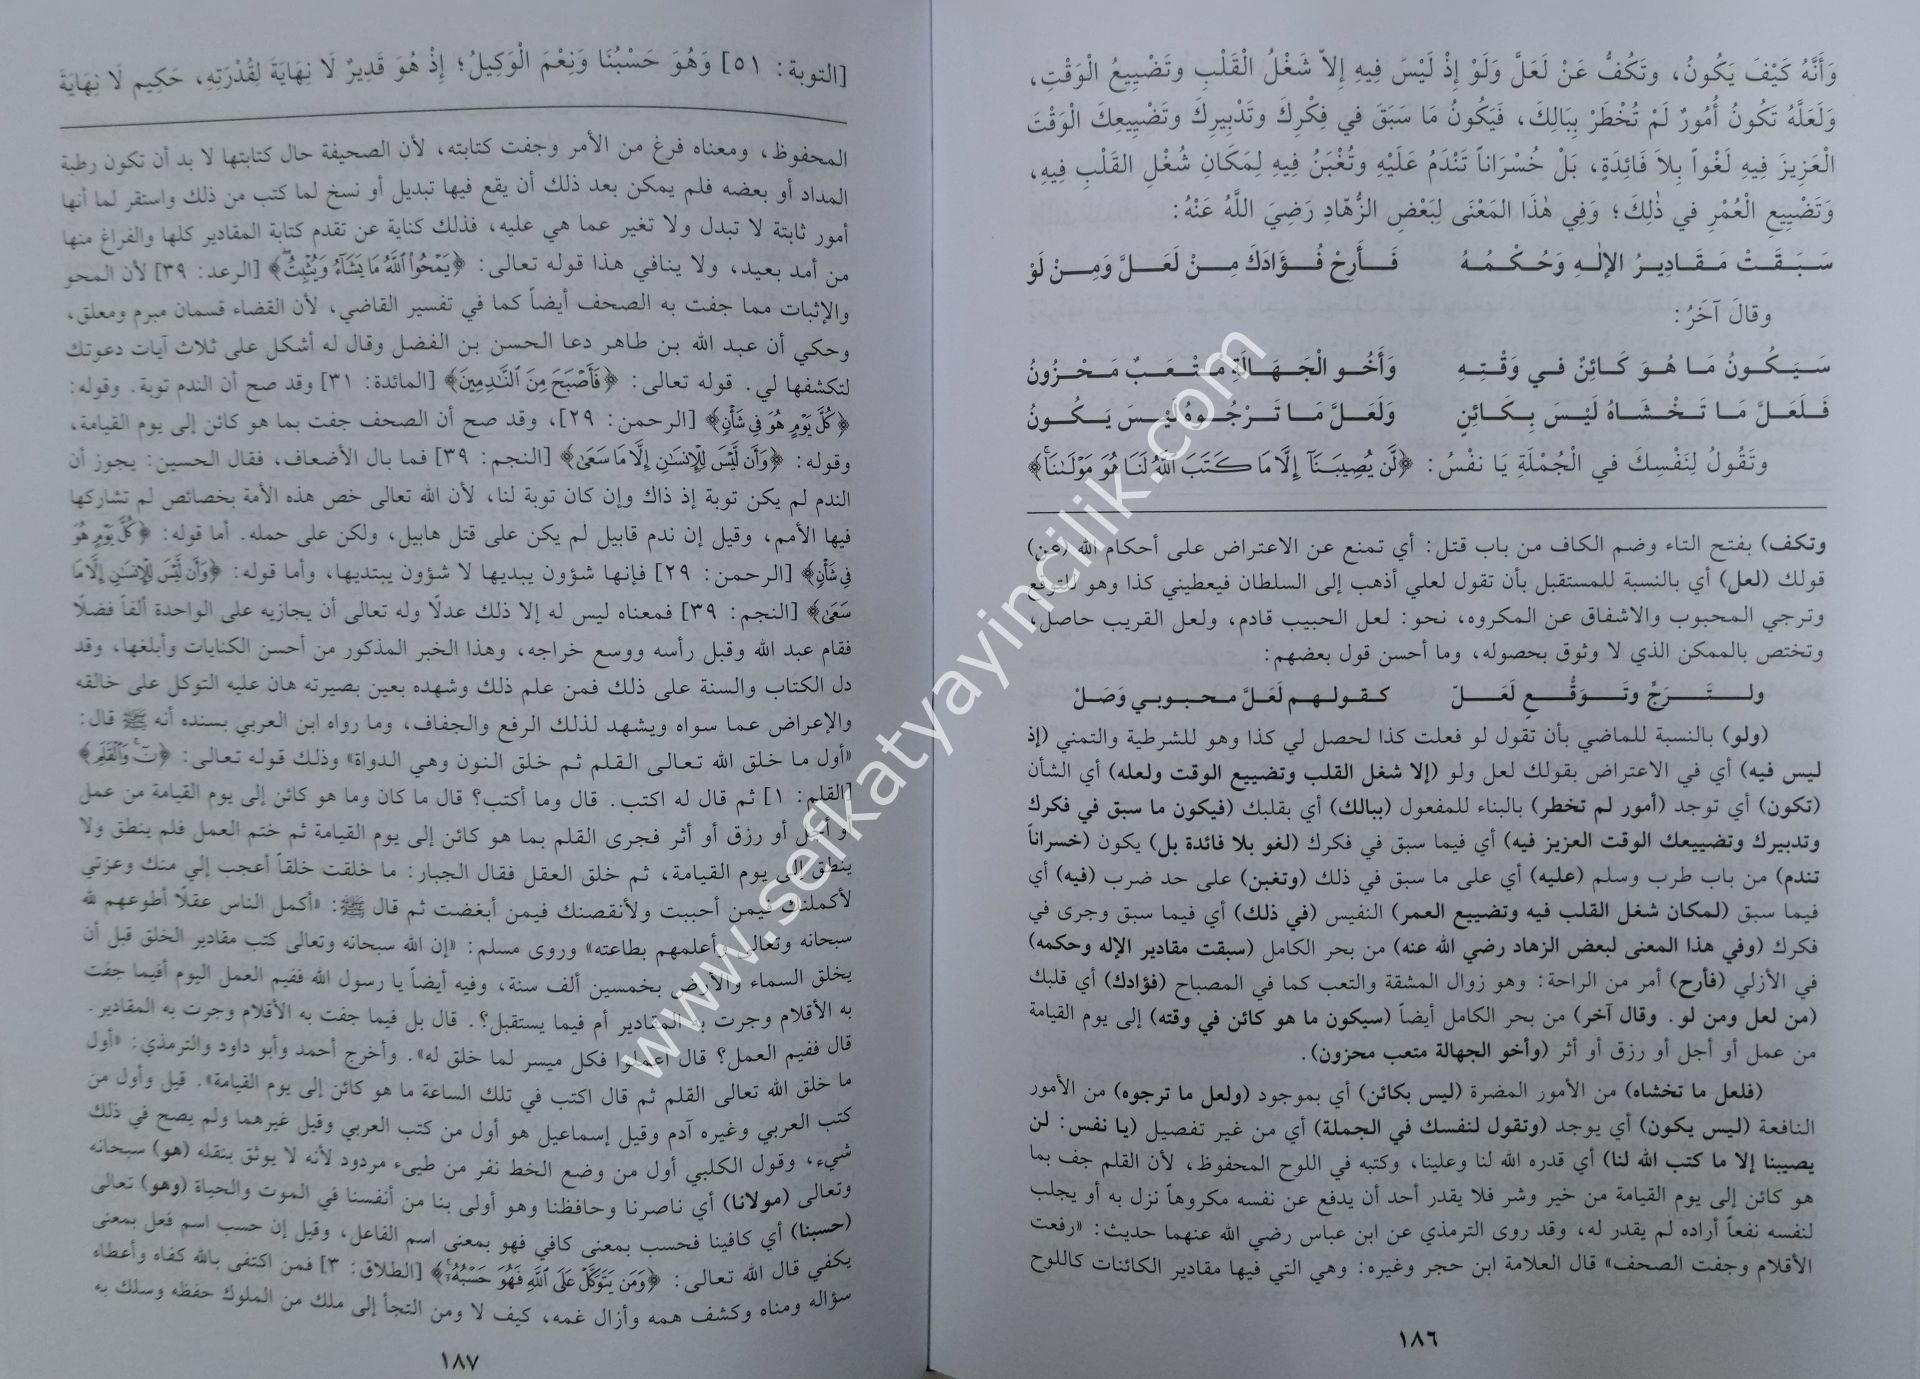 وَأَنَّهُ كَيْفَ يَكُونُ، وَتَكُفُّ عَنْ لَعَلَّ وَلَوْ إِذْ لَيْسَ فِيهِ إِلاَّ شَغْلُ الْقَلْبِ وَتَضْيِيعُ الْوَقْتِ،
وَلَعَلَّهُ تَكُونُ أُمُورٌ لَمْ تُخْطَرْ بِبَالِكَ، فَيَكُونُ مَا سَبَقَ فِي فِكْرِكَ وَتَدْبِيرِكَ وَتَضْيِيعِكَ الْوَقْتَ
الْعَزِيزَ فِيهِ لَغْواً بِلاَ فَائِدَةٍ، بَلْ خُسْرَاناً تَنْدَمُ عَلَيْهِ وَتُغْبَنُ فِيهِ لِمَكَانِ شُغْلِ القَلْبِ فِيهِ،
وَتَضْيِيعِ الْعُمْرِ فِي ذٰلِكَ؛ وَفِي هٰذَا المَعْنَى لِبَعْضِ الزُّهّادِ رَضِيَ اللَّهُ عَنْهُ:
سَبَقَتْ مَقَادِيرُ الإلٰهِ وَحُكْمُهُ فَأَرِحْ فُؤَادَكَ مِنْ لَعَلَّ وَمِنْ لَوْ
وقالَ آخَرُ:
سَيَكُونُ مَا هُوَ كَائِنٌ فِي وَقْتِهِ وَأَخُو الْجَهَالَةِ مُتْعَبٌ مَحْزُونُ
فَلَعَلَّ مَا تَخْشَاهُ لَيْسَ بِكَائِنٍ وَلَعَلَّ مَا تَرْجُوهُ لَيْسَ يَكُونُ
وَتَقُولُ لِنَفْسِكَ فِي الْجُمْلَةِ يَا نَفْسُ: ﴿لَّن يُصِيبَنَآ إِلَّا مَا كَتَبَ اللَّهُ لَنَا هُوَ مَوْلَىٰنَا﴾
وتكف) بفتح التاء وضم الكاف من باب قتل: أي تمنع عن الاعتراض على أحكام الله (عن)
قولك (لعل) أي بالنسبة للمستقبل بأن تقول لعلي أذهب إلى السلطان فيعطيني كذا وهو للتوقع
وترجي المحبوب والاشفاق عن المكروه، نحو: لعل الحبيب قادم، ولعل القريب حاصل،
وتختص بالممكن الذي لا وثوق بحصوله، وما أحسن قول بعضهم:
ولتَرَجٍّ وتَوَقُّعٍ لَعَلّ كقولهم لَعَلَّ محبوبي وَصَلْ
(ولو) بالنسبة للماضي بأن تقول لو فعلت كذا لحصل لي كذا وهو للشرطية والتمني (إذ
ليس فيه) أي في الاعتراض بقولك لعل ولو (إلا شغل القلب وتضييع الوقت ولعله) أي الشأن
(تكون) أي توجد (أمور لم تخطر) بالبناء للمفعول (ببالك) أي بقلبك (فيكون ما سبق في فكرك
وتدبيرك وتضييعك الوقت العزيز فيه) أي فيما سبق في فكرك (لغو بلا فائدة بل) يكون (خسراناً
تندم) من باب طرب وسلم (عليه) أي على ما سبق في ذلك (وتغبن) على حد ضرب (فيه) أي
فيما سبق (لمكان شغل القلب فيه وتضييع العمر) النفيس (في ذلك) أي فيما سبق وجرى في
فكرك (وفي هذا المعنى لبعض الزهاد رضي الله عنه) من بحر الكامل (سبقت مقادير الإله وحكمه)
في الأزلي (فأرح) أمر من الراحة: وهو زوال المشقة والتعب كما في المصباح (فؤادك) أي قلبك
(من لعل ومن لو. وقال آخر) من بحر الكامل أيضاً (سيكون ما هو كائن في وقته) إلى يوم القيامة
من عمل أو أجل أو رزق أو أثر (وأخو الجهالة متعب محزون).
(فلعل ما تخشاه) من الأمور المضرة (ليس بكائن) أي بموجود (ولعل ما ترجوه) من الأمور
النافعة (ليس يكون) أي يوجد (وتقول لنفسك في الجملة) أي من غير تفصيل (يا نفس: لن
يصيبنا إلا ما كتب الله لنا) أي قدره الله لنا وعلينا، وكتبه في اللوح المحفوظ، لأن القلم جف بما
هو كائن إلى يوم القيامة من خير وشر فلا يقدر أحد أن يدفع عن نفسه مكروهاً نزل به أو يجلب
لنفسه نفعاً أراده لم يقدر له، وقد روى الترمذي عن ابن عباس رضي الله عنهما حديث: «رفعت
الأقلام وجفت الصحف» قال العلامة ابن حجر وغيره: وهي التي فيها مقادير الكائنات كاللوح
١٨٦
[التوبة: ٥١] وَهُوَ حَسْبُنَا وَنِعْمَ الْوَكِيلُ؛ إِذْ هُوَ قَدِيرٌ لَا نِهَايَةَ لِقُدْرَتِهِ، حَكِيم لَا نِهَايَةَ
المحفوظ، ومعناه فرغ من الأمر وجفت كتابته، لأن الصحيفة حال كتابتها لا بد أن تكون رطبة
المداد أو بعضه فلم يمكن بعد ذلك أن يقع فيها تبديل أو نسخ لما كتب من ذلك واستقر لما أنها
أمور ثابتة لا تبدل ولا تغير عما هي عليه، فذلك كناية عن تقدم كتابة المقادير كلها والفراغ منها
من أمد بعيد، ولا ينافي هذا قوله تعالى: ﴿يَمْحُوا۟ اللَّهُ مَا يَشَآءُ وَيُثْبِتُ﴾ [الرعد: ٣٩] لأن المحو
والإثبات مما جفت به الصحف أيضاً كما في تفسير القاضي، لأن القضاء قسمان مبرم ومعلق،
وحكي أن عبد الله بن طاهر دعا الحسن بن الفضل وقال له أشكل على ثلاث آيات دعوتك
لتكشفها لي. قوله تعالى: ﴿فَأَصْبَحَ مِنَ النَّٰدِمِينَ﴾ [المائدة: ٣١] وقد صح أن الندم توبة. وقوله:
﴿كُلَّ يَوْمٍ هُوَ فِي شَأْنٍ﴾ [الرحمن: ٢٩]، وقد صح أن الصحف جفت بما هو كائن إلى يوم القيامة،
وقوله: ﴿وَأَن لَّيْسَ لِلْإِنسَٰنِ إِلَّا مَا سَعَىٰ﴾ [النجم: ٣٩] فما بال الأضعاف، فقال الحسين: يجوز أن
الندم لم يكن توبة إذ ذاك وإن كان توبة لنا، لأن الله تعالى خص هذه الأمة بخصائص لم تشاركها
فيها الأمم، وقيل إن ندم قابيل لم يكن على قتل هابيل، ولكن على حمله. أما قوله: ﴿كُلَّ يَوْمٍ هُوَ
فِي شَأْنٍ﴾ [الرحمن: ٢٩] فإنها شؤون يبديها لا شؤون يبتديها، وأما قوله: ﴿وَأَن لَّيْسَ لِلْإِنسَٰنِ إِلَّا مَا
سَعَىٰ﴾ [النجم: ٣٩] فمعناه ليس له إلا ذلك عدلًا وله تعالى أن يجازيه على الواحدة ألفاً فضلًا
فقام عبد الله وقبل رأسه ووسع خراجه، وهذا الخبر المذكور من أحسن الكنايات وأبلغها، وقد
دل الكتاب والسنة على ذلك فمن علم ذلك وشهده بعين بصيرته هان عليه التوكل على خالقه
والإعراض عما سواه ويشهد لذلك الرفع والجفاف، وما رواه ابن العربي بسنده أنه ﷺ قال:
«أول ما خلق الله تعالى القلم ثم خلق النون وهي الدواة» وذلك قوله تعالى: ﴿نٓ وَٱلْقَلَمِ﴾
[القلم: ١] ثم قال له اكتب. قال وما أكتب؟ قال ما كان وما هو كائن إلى يوم القيامة من عمل
أو أجل أو رزق أو أثر فجرى القلم بما هو كائن إلى يوم القيامة ثم ختم العمل فلم ينطق ولا
ينطق إلى يوم القيامة، ثم خلق العقل فقال الجبار: ما خلقت خلقاً أعجب إلي منك وعزتي
لأكملنك فيمن أحببت ولأنقصنك فيمن أبغضت ثم قال ﷺ: «أكمل الناس عقلًا أطوعهم لله
سبحانه وتعالى وأعلمهم بطاعته» وروى مسلم: «إن الله سبحانه وتعالى كتب مقادير الخلق قبل أن
يخلق السماء والأرض بخمسين ألف سنة، وفيه أيضاً يا رسول الله ففيم العمل اليوم أفيما جفت
به الأقلام وجرت به المقادير أم فيما يستقبل؟. قال بل فيما جفت به الأقلام وجرت به المقادير.
قال ففيم العمل؟ قال اعملوا فكل ميسر لما خلق له». وأخرج أحمد وأبو داود والترمذي: «أول
ما خلق الله تعالى القلم ثم قال اكتب في تلك الساعة ما هو كائن إلى يوم القيامة». قيل وأول من
كتب العربي وغيره آدم وقيل إسماعيل هو أول من كتب العربي وقيل غيرهما ولم يصح في ذلك
شيء، وقول الكلبي أول من وضع الخط نفر من طيىء مردود لأنه لا يوثق بنقله (هو) سبحانه
وتعالى (مولانا) أي ناصرنا وحافظنا وهو أولى بنا من أنفسنا في الموت والحياة (وهو) تعالى
(حسبنا) أي كافينا فحسب بمعنى كافي فهو بمعنى اسم الفاعل، وقيل إن حسب اسم فعل بمعنى
يكفي قال الله تعالى: ﴿وَمَن يَتَوَكَّلْ عَلَى اللَّهِ فَهُوَ حَسْبُهُۥٓ﴾ [الطلاق: ٣] فمن اكتفى بالله كفاه وأعطاه
سؤاله ومناه وكشف همه وأزال غمه، كيف لا ومن التجأ إلى ملك من الملوك حفظه وسلك به
١٨٧
www.sefkatyayincilik.com